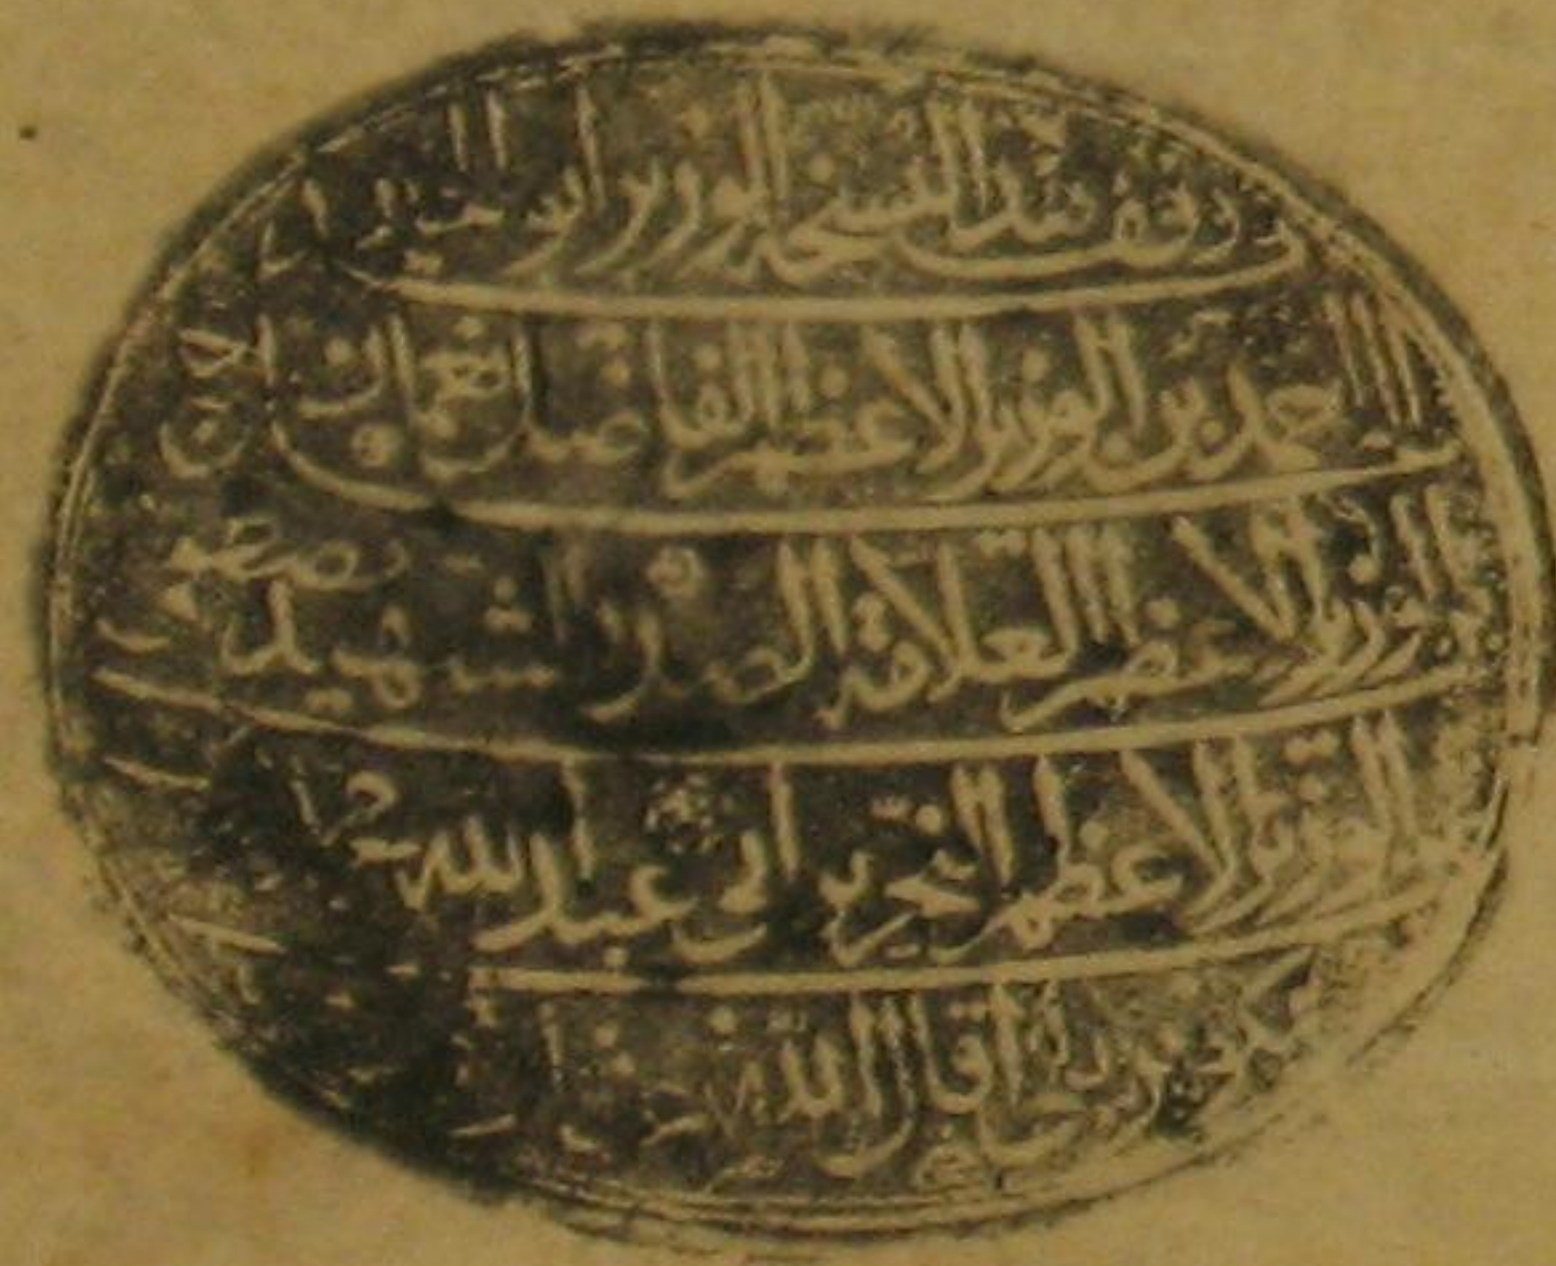 وقف هذه النسخة الوزير ابو الخير ا
حمد بن الوزير الاعظم الفاضل نعمان ابن
الوزير الاعظم العلامة الصدر الشهيد مصطفى
الوزير الاعظم النحرير ابي عبد الله محمد
اقال الله